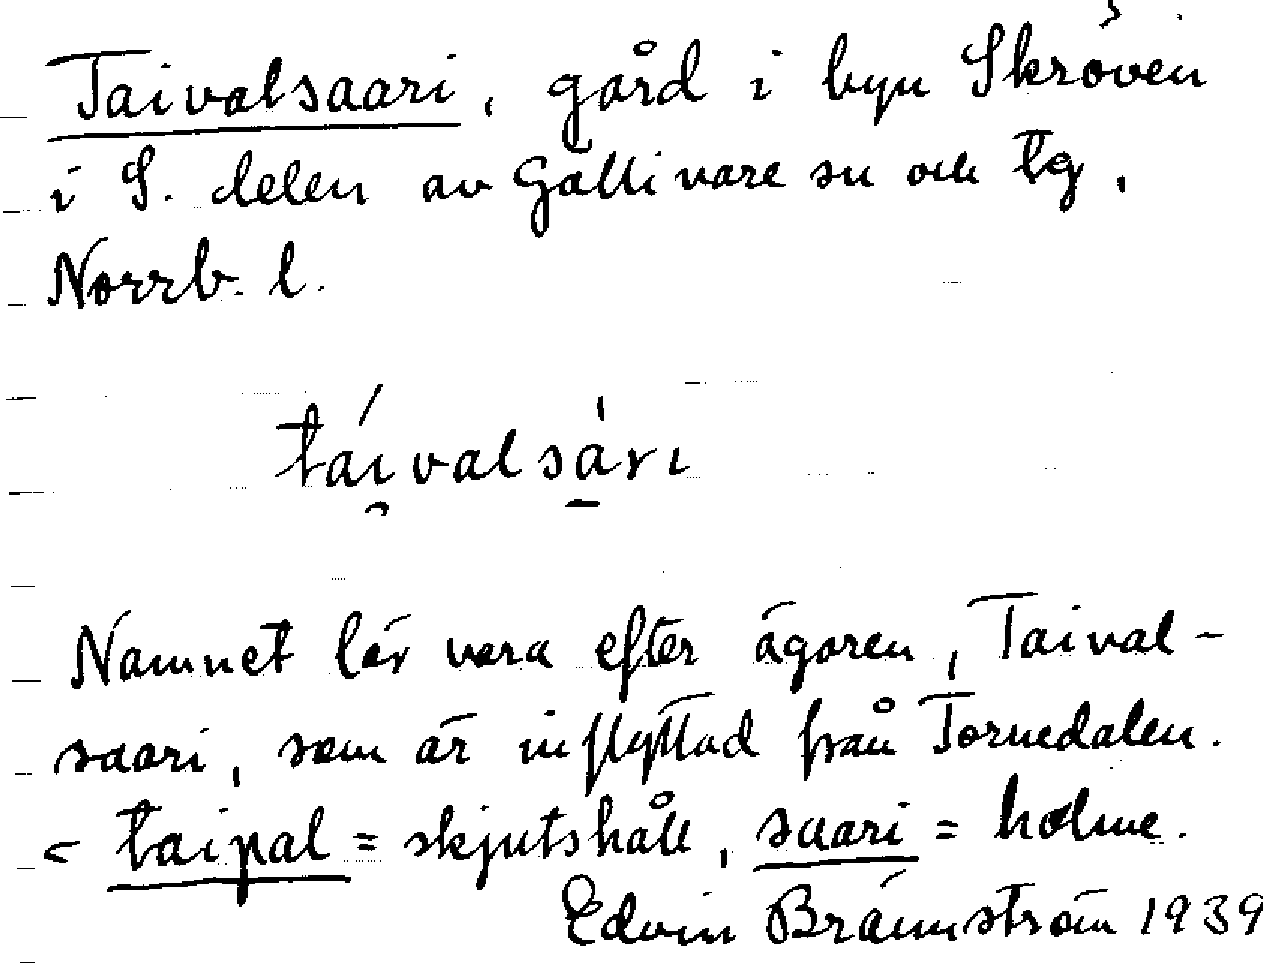 Taivalsaari, gård i byn Skröven
i S. delen av Gällivare sn och tg,
Norrb. l.
tái̯valsàrı
Namnet lär vara efter ägaren, Taival-
saari, som är inflyttad från Tornedalen.
< taipal = skjutshåll, saari = holme.
Edvin Brännström 1939